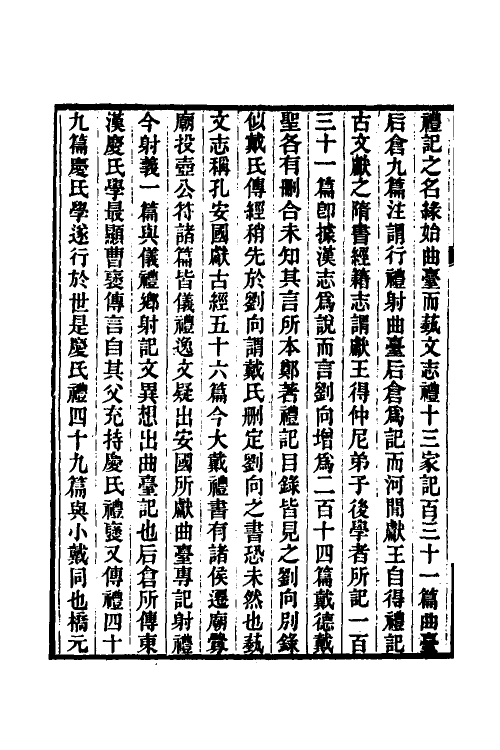 禮記之名緣始曲臺而蓺文志禮十三家記百三十一篇曲臺
后倉九篇注謂行禮射曲臺后倉爲記而河閒獻王自得禮記
古文獻之隋書經籍志謂獻王得仲尼弟子後學者所記一百
三十一篇卽據漢志爲說而言劉向增爲二百十四篇戴德戴
聖各有刪合未知其言所本鄭著禮記目錄皆見之劉向別錄
似戴氏傳經稍先於劉向謂戴氏刪定劉向之書恐未然也蓺
文志稱孔安國獻古經五十六篇今大戴禮書有諸侯遷廟釁
廟投壺公符諸篇皆儀禮逸文疑出安國所獻曲臺專記射禮
今射義一篇與儀禮鄉射記文異想出曲臺記也后倉所傳東
漢慶氏學最顯曹襃傳言自其父充持慶氏禮襃又傳禮四十
九篇慶氏學遂行於世是慶氏禮四十九篇與小戴同也橋元